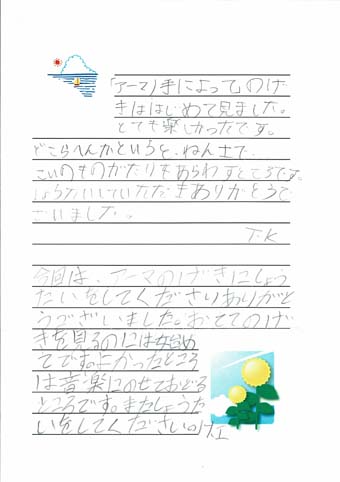 「アーマ」手によってのげ
きははじめて見ました。
とても楽しかったです。
どこらへんかというと、ねん土で
こいのものがたりをあらわすところです。
しょうたいしていただきありがとうご
ざいました。
T.K
今回は、アーマのげきにしょう
たいをしてくださりありがと
うございました。おててのげ
きを見るのには始め
てです。よかったところ
は音楽にのせておどる
ところです。またしょうた
いをしてください。